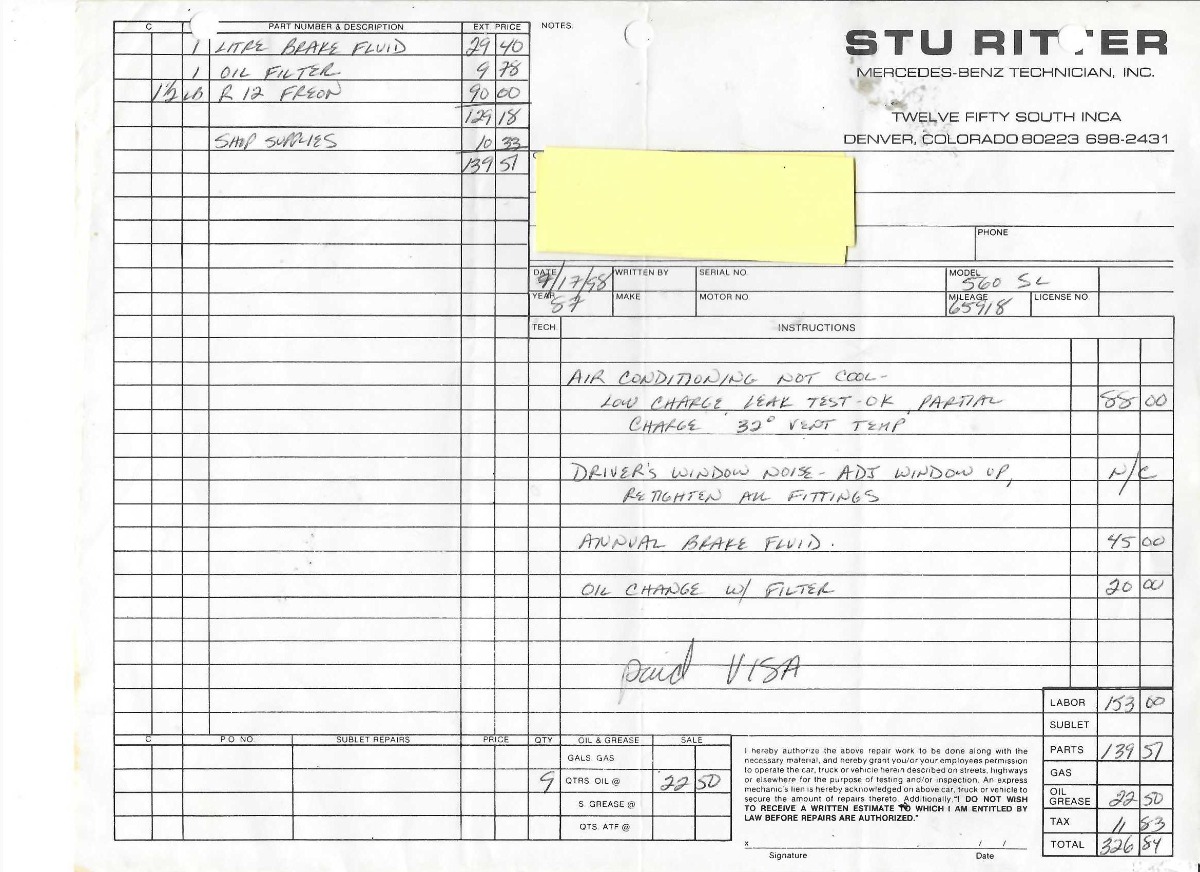 C PART NUMBER & DESCRIPTION EXT PRICE
1 LITRE BRAKE FLUID 29 40
1 OIL FILTER 9 78
1½ LB R 12 FREON 90 00
129 18
SHOP SUPPLIES 10 33
139 51
NOTES:
STU RITTER
MERCEDES-BENZ TECHNICIAN, INC.
TWELVE FIFTY SOUTH INCA
DENVER, COLORADO 80223 698-2431
PHONE
DATE 9/17/98 WRITTEN BY SERIAL NO. MODEL 560 SL
YEAR 87 MAKE MOTOR NO. MILEAGE 65918 LICENSE NO.
TECH. INSTRUCTIONS
AIR CONDITIONING NOT COOL-
LOW CHARGE, LEAK TEST-OK, PARTIAL 88 00
CHARGE 32° VENT TEMP
DRIVER'S WINDOW NOISE - ADJ WINDOW UP, N/C
RETIGHTEN ALL FITTINGS
ANNUAL BRAKE FLUID. 45 00
OIL CHANGE W/ FILTER 20 00
paid VISA
LABOR 153 00
SUBLET
PARTS 139 51
GAS
OIL GREASE 22 50
TAX 11 83
TOTAL 326 84
C P.O. NO. SUBLET REPAIRS PRICE QTY OIL & GREASE SALE
GALS. GAS
9 QTRS OIL @ 22 50
S. GREASE @
QTS. ATF @
I hereby authorize the above repair work to be done along with the
necessary material, and hereby grant you/or your employees permission
to operate the car, truck or vehicle herein described on streets, highways
or elsewhere for the purpose of testing and/or inspection. An express
mechanic's lien is hereby acknowledged on above car, truck or vehicle to
secure the amount of repairs thereto. Additionally "I DO NOT WISH
TO RECEIVE A WRITTEN ESTIMATE TO WHICH I AM ENTITLED BY
LAW BEFORE REPAIRS ARE AUTHORIZED."
x / /
Signature Date